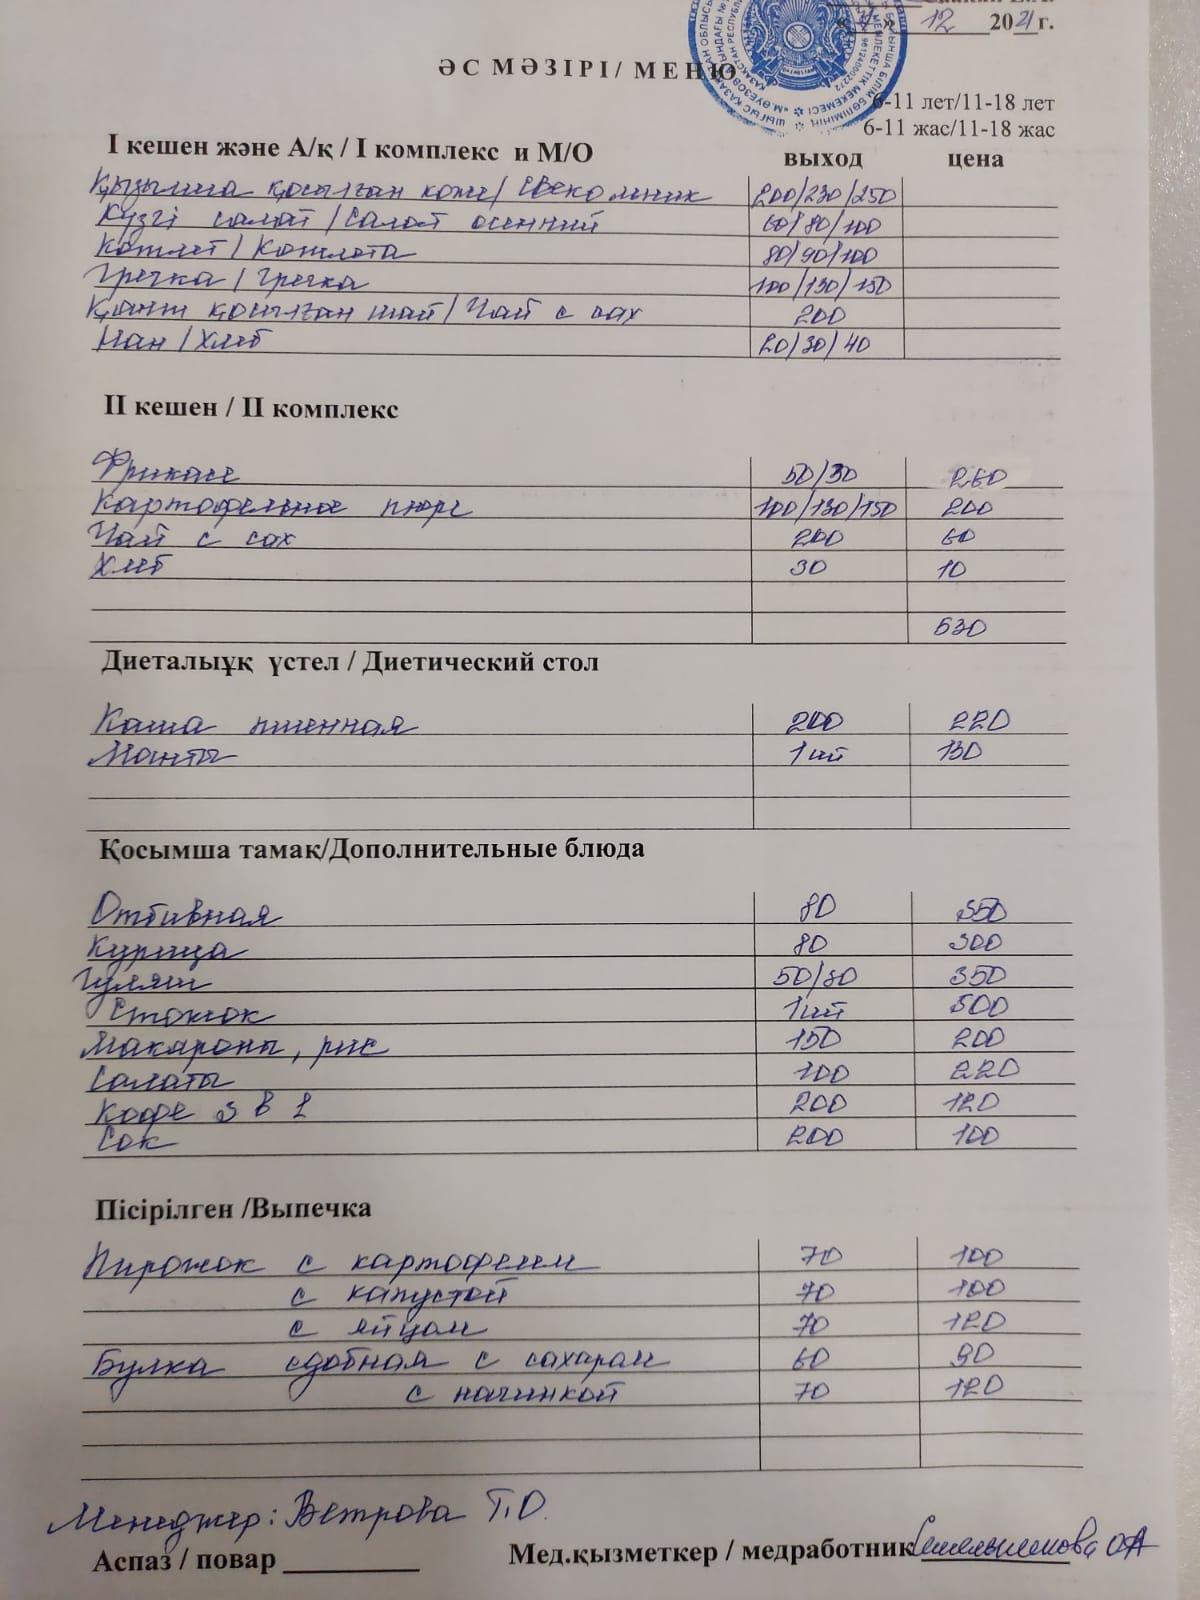 « » 12 2021г.
ӘС МӘЗІРІ/ МЕНЮ
6-11 лет/11-18 лет
6-11 жас/11-18 жас
I кешен және А/қ / I комплекс и М/О выход цена
Қызылша қосылған көже/ свекольник 200/230/250
Күзгі салат/Салат осенний 60/80/100
Котлет/Котлета 80/90/100
Гречка/Гречка 100/130/150
Қант қосылған шай/Чай с сах 200
Нан/Хлеб 20/30/40
II кешен / II комплекс
Фрикасе 50/30 260
Картофельное пюре 100/130/150 200
Чай с сах 200 60
Хлеб 30 10
530
Диеталыұқ үстел / Диетический стол
Каша пшенная 200 220
Манты 1шт 130
Қосымша тамақ/Дополнительные блюда
Отбивная 80 350
Курица 80 300
Гуляш 50/30 350
Стожок 1шт 500
Макароны, рис 150 200
Салаты 100 220
Кофе 3 в 1 200 120
Сок 200 100
Пісірілген /Выпечка
Пирожок с картофелем 70 100
с капустой 70 100
с яйцом 70 120
Булка сдобная с сахаром 60 90
с начинкой 70 120
Менеджер: Ветрова Т.О.
Аспаз / повар Мед.қызметкер / медработник